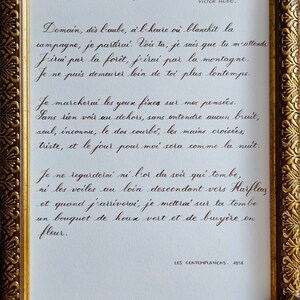 VICTOR HUGO.
Demain, dès l'aube, à l'heure où blanchit la
campagne, je partirai. Vois-tu, je sais que tu m'attends
J'irai par la forêt, j'irai par la montagne.
Je ne puis demeurer loin de toi plus longtemps.
Je marcherai les yeux fixés sur mes pensées,
Sans rien voir au dehors, sans entendre aucun bruit,
seul, inconnu, le dos courbé, les mains croisées,
triste, et le jour pour moi sera comme la nuit.
Je ne regarderai ni l'or du soir qui tombe,
ni les voiles au loin descendant vers Harfleur
et quand j'arriverai, je mettrai sur ta tombe
un bouquet de houx vert et de bruyère en
fleur.
LES CONTEMPLATIONS. 1856